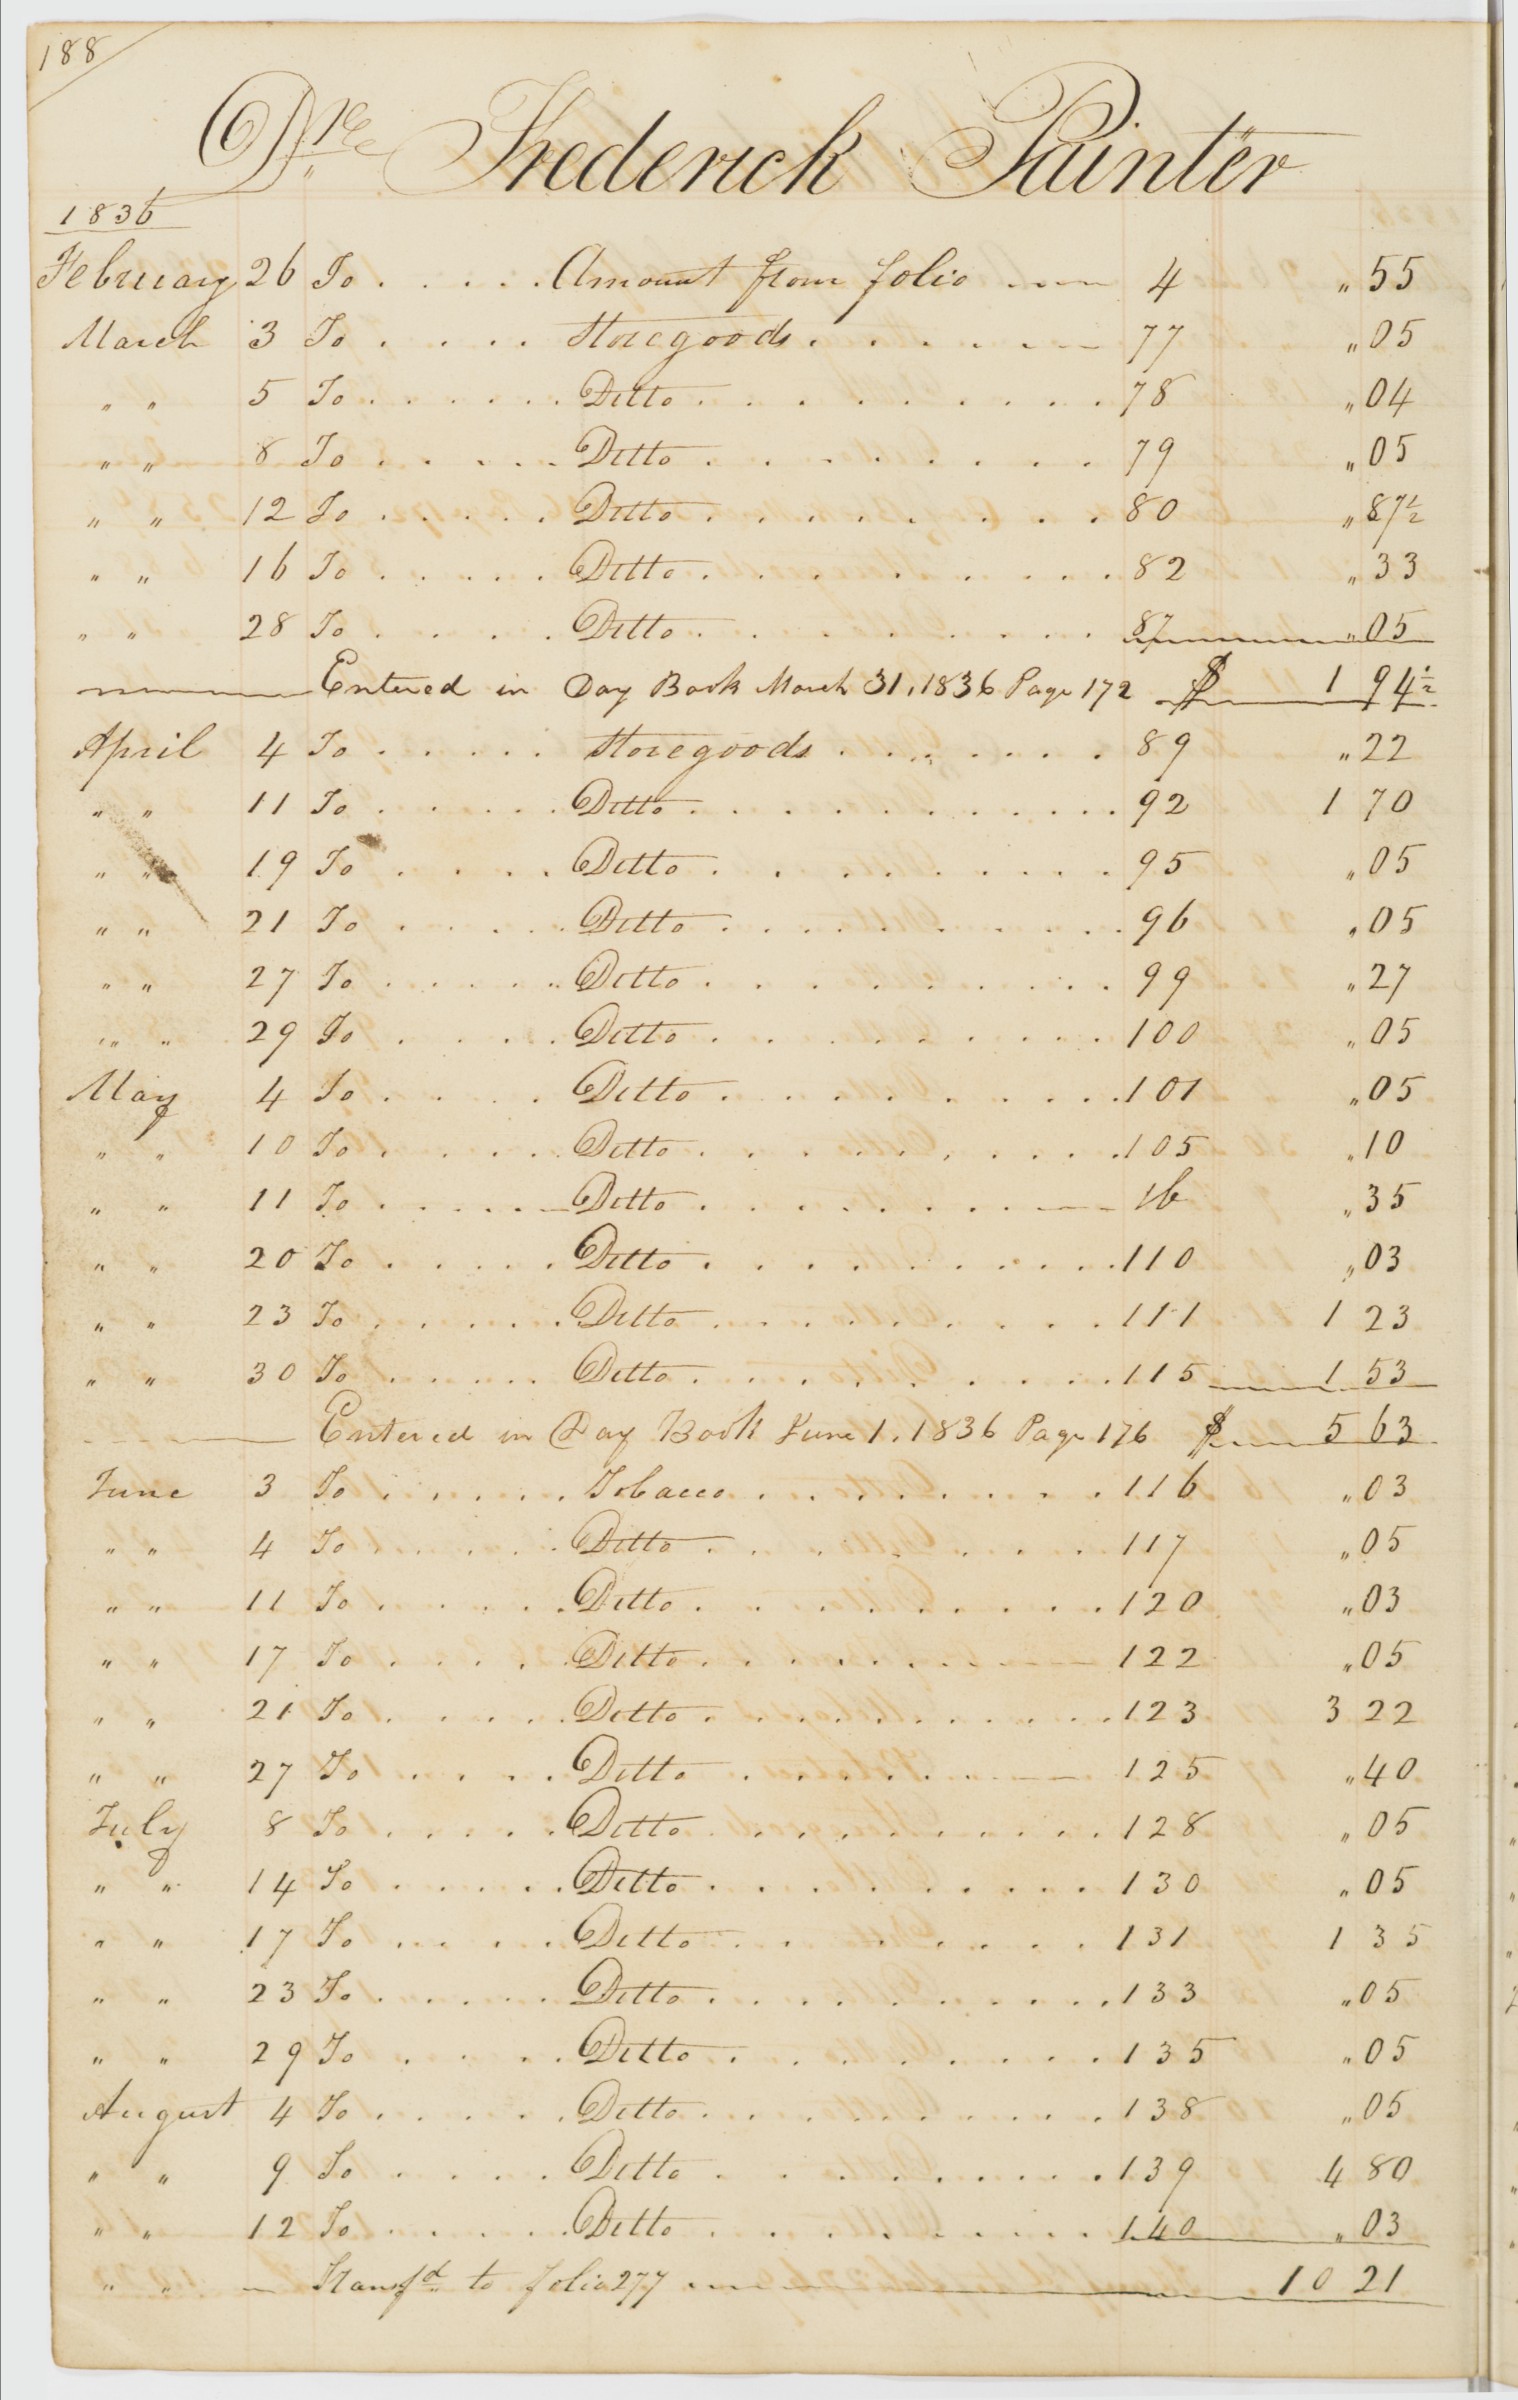 188
Dr Frederick Painter
1836
February 26 To . . . . . Amount from folio 4 " 55
March 3 To . . . . Storegoods . . . . . 77 " 05
" " 5 To . . . . . . Ditto . . . . . . . . 78 " 04
" " 8 To . . . . . Ditto . . . . . . . . 79 " 05
" " 12 To . . . . . Ditto . . . . . . . . 80 " 87½
" " 16 To . . . . . Ditto . . . . . . . . 82 " 33
" " 28 To . . . . Ditto . . . . . . . . 87 " 05
Entered in Day Book March 31, 1836 Page 172 $ 1 94½
April 4 To . . . . . Storegoods . . . . . . 89 " 22
" " 11 To . . . . . Ditto . . . . . . . . 92 1 70
" " 19 To . . . . Ditto . . . . . . . . 95 " 05
" " 21 To . . . . . Ditto . . . . . . . . 96 " 05
" " 27 To . . . . . Ditto . . . . . . . . 99 " 27
" " 29 To . . . . Ditto . . . . . . . . 100 " 05
May 4 To . . . . Ditto . . . . . . . . 101 " 05
" " 10 To . . . . . Ditto . . . . . . . . 105 " 10
" " 11 To . . . . . Ditto . . . . . . . . Ib " 35
" " 20 To . . . . . Ditto . . . . . . . . 110 " 03
" " 23 To . . . . . Ditto . . . . . . . . 111 1 23
" " 30 To . . . . . Ditto . . . . . . . . 115 1 53
Entered in Day Book June 1, 1836 Page 176 $ 5 63
June 3 To . . . . . Tobacco . . . . . . . 116 " 03
" " 4 To . . . . . Ditto . . . . . . . . 117 " 05
" " 11 To . . . . . Ditto . . . . . . . . 120 " 03
" " 17 To . . . . . Ditto . . . . . . . . 122 " 05
" " 21 To . . . . . Ditto . . . . . . . . 123 3 22
" " 27 To . . . . Ditto . . . . . . 125 " 40
July 8 To . . . . . Ditto . . . . . . . . 128 " 05
" " 14 To . . . . . Ditto . . . . . . . . 130 " 05
" " 17 To . . . . Ditto . . . . . . . . 131 1 35
" " 23 To . . . . . Ditto . . . . . . . . 133 " 05
" " 29 To . . . . Ditto . . . . . . . . 135 " 05
August 4 To . . . . . Ditto . . . . . . . . 138 " 05
" " 9 To . . . . Ditto . . . . . . . . 139 4 80
" " 12 To . . . . . Ditto . . . . . . . . 140 " 03
" " Transfd to folio 277 10 21